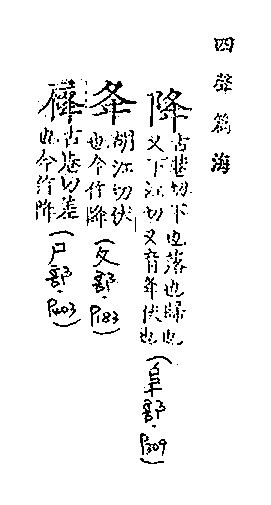 四聲篇海
降 古巷切下也落也歸也
又下江切又音年伏也
(阜部.P.309)
夅 胡江切伏
也今作降
(夂部.P.183)
古巷切差
也今作降
(尸部.P.403)